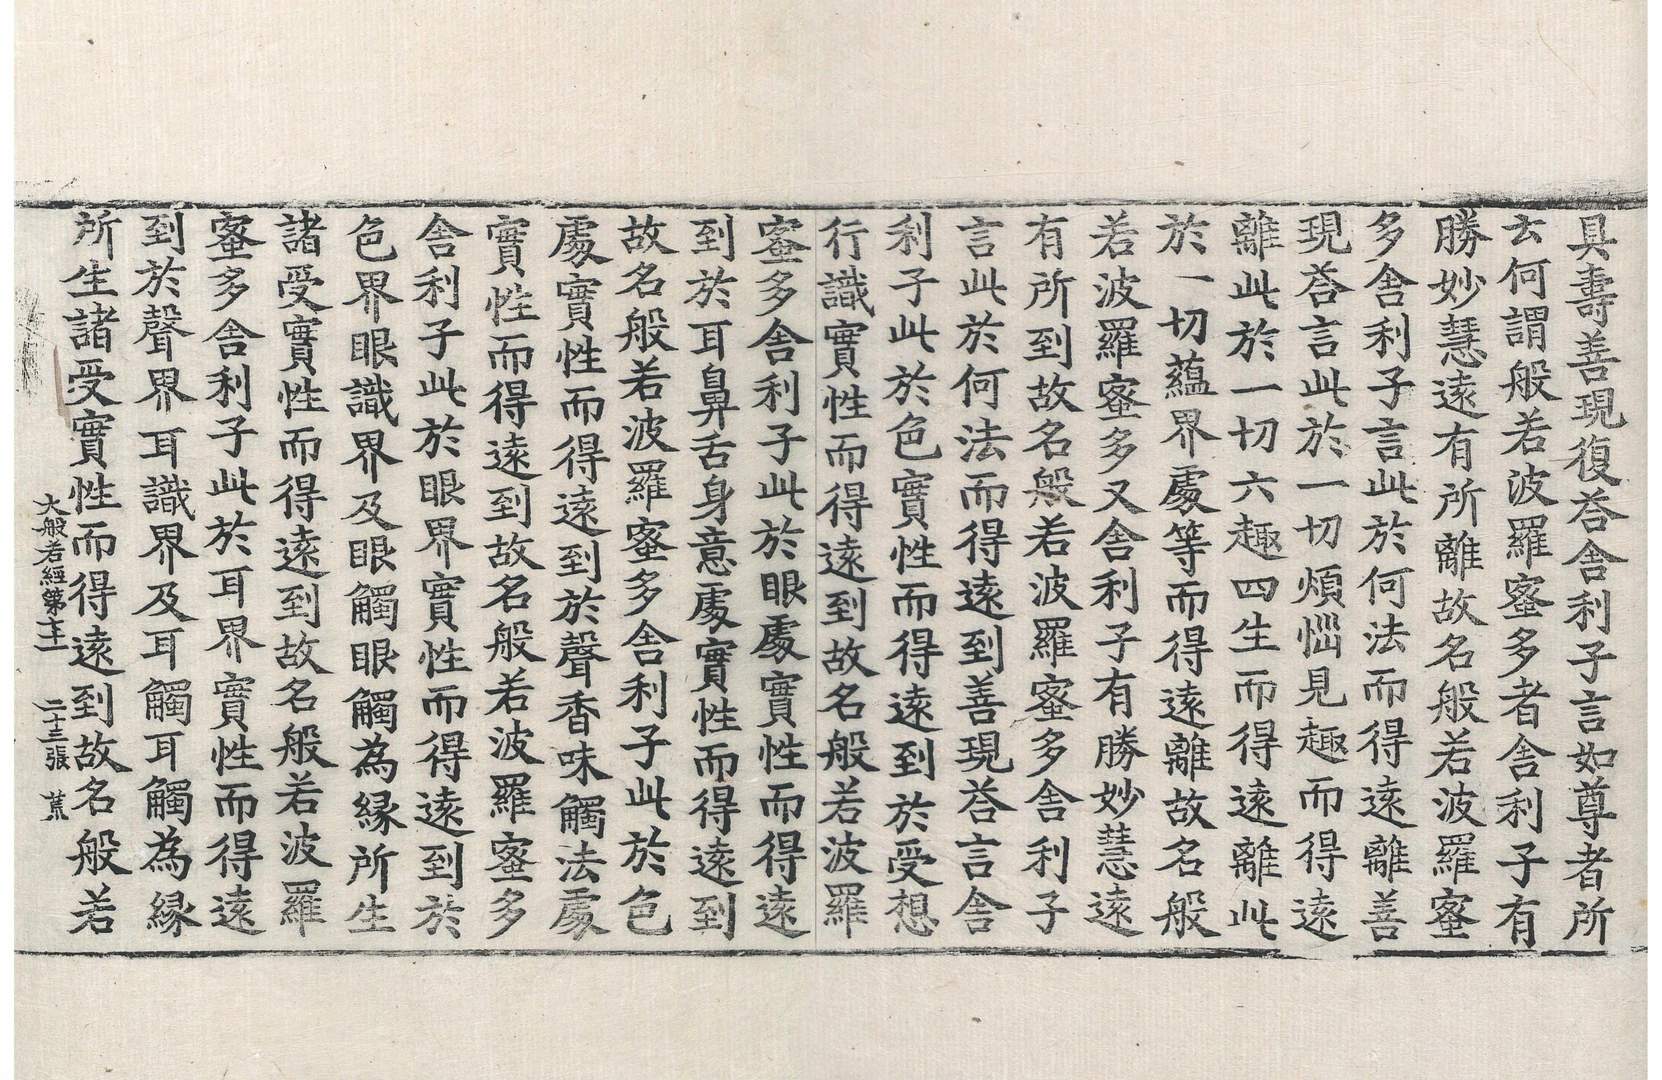 具壽善現復荅舍利子言如尊者所
云何謂般若波羅蜜多者舍利子有
勝妙慧遠有所離故名般若波羅蜜
多舍利子言此於何法而得遠離善
現荅言此於一切煩惱見趣而得遠
離此於一切六趣四生而得遠離此
於一切蘊界處等而得遠離故名般
若波羅蜜多又舍利子有勝妙慧遠
有所到故名般若波羅蜜多舍利子
言此於何法而得遠到善現荅言舍
利子此於色實性而得遠到於受想
行識實性而得遠到故名般若波羅
蜜多舍利子此於眼處實性而得遠
到於耳鼻舌身意處實性而得遠到
故名般若波羅蜜多舍利子此於色
處實性而得遠到於聲香味觸法處
實性而得遠到故名般若波羅蜜多
舍利子此於眼界實性而得遠到於
色界眼識界及眼觸眼觸為緣所生
諸受實性而得遠到故名般若波羅
蜜多舍利子此於耳界實性而得遠
到於聲界耳識界及耳觸耳觸為緣
所生諸受實性而得遠到故名般若
大般若經第 二十三張